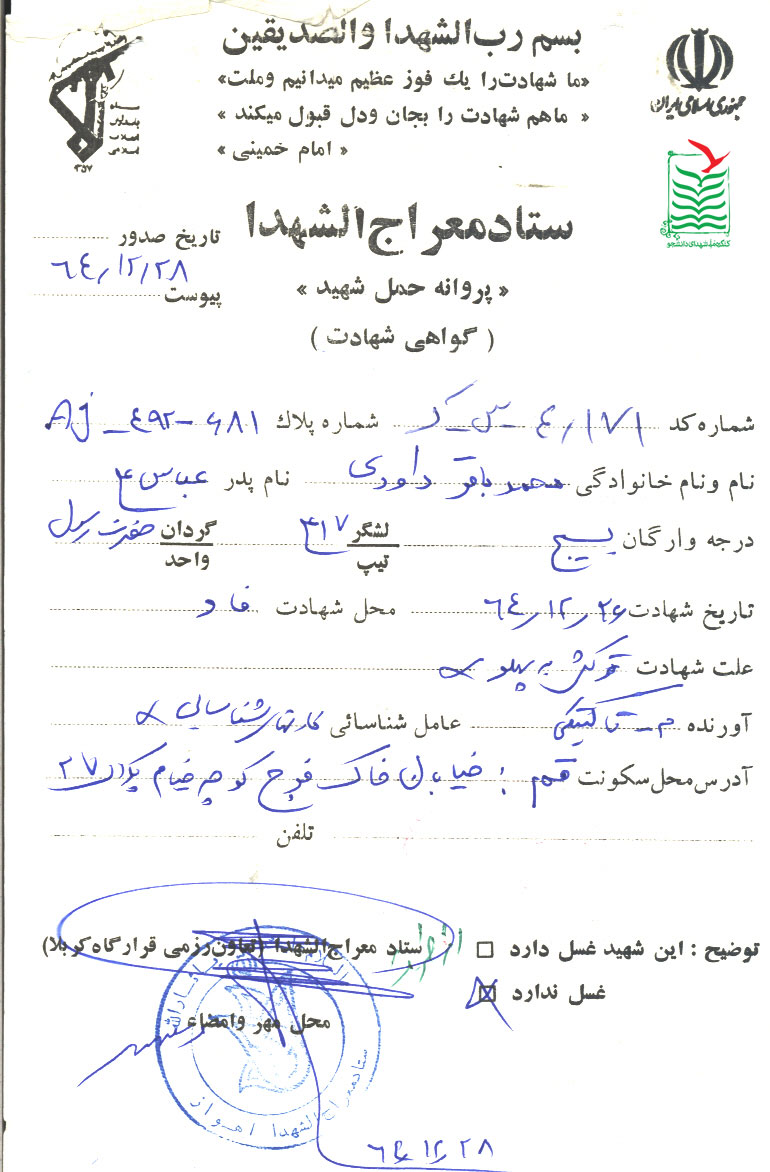 بسم رب الشهدا والصدیقین
«ما شهادت را یك فوز عظیم میدانیم وملت»
« ماهم شهادت را بجان ودل قبول میکند »
« امام خمینی »
جمهوری اسلامی ایران
سپاه
پاسداران
انقلاب
اسلامی
۱۳۵۷
کنگره ملی شهدای دانشجو
ستاد معراج الشهدا
تاریخ صدور
۶٤/۱۲/۲۸
« پروانه حمل شهید »
پیوست
( گواهی شهادت )
شماره کد ۴/۱۷۱ شماره پلاك ۶۸۱-٤۹۲ـAJ
نام ونام خانوادگی محمد باقر داوری نام پدر عباس
درجه وارگان بسیج لشگر ۱۷ گردان حضرت رسول
تیپ واحد
تاریخ شهادت ۶٤/۱۲/۲۶ محل شهادت فاو
علت شهادت ترکش به پهلو
آورنده عامل شناسائی کارتهای شناسایی
آدرس محل سکونت قم : خیابان خاک فرج کوچه خیام پلاک ۲۷
تلفن
توضیح : این شهید غسل دارد □ ستاد معراج الشهدا (تعاون رزمی قرارگاه کربلا) اهواز
غسل ندارد
محل مهر وامضاء
ستاد معراج الشهدا اهواز
۶٤/۱۲/۲۸